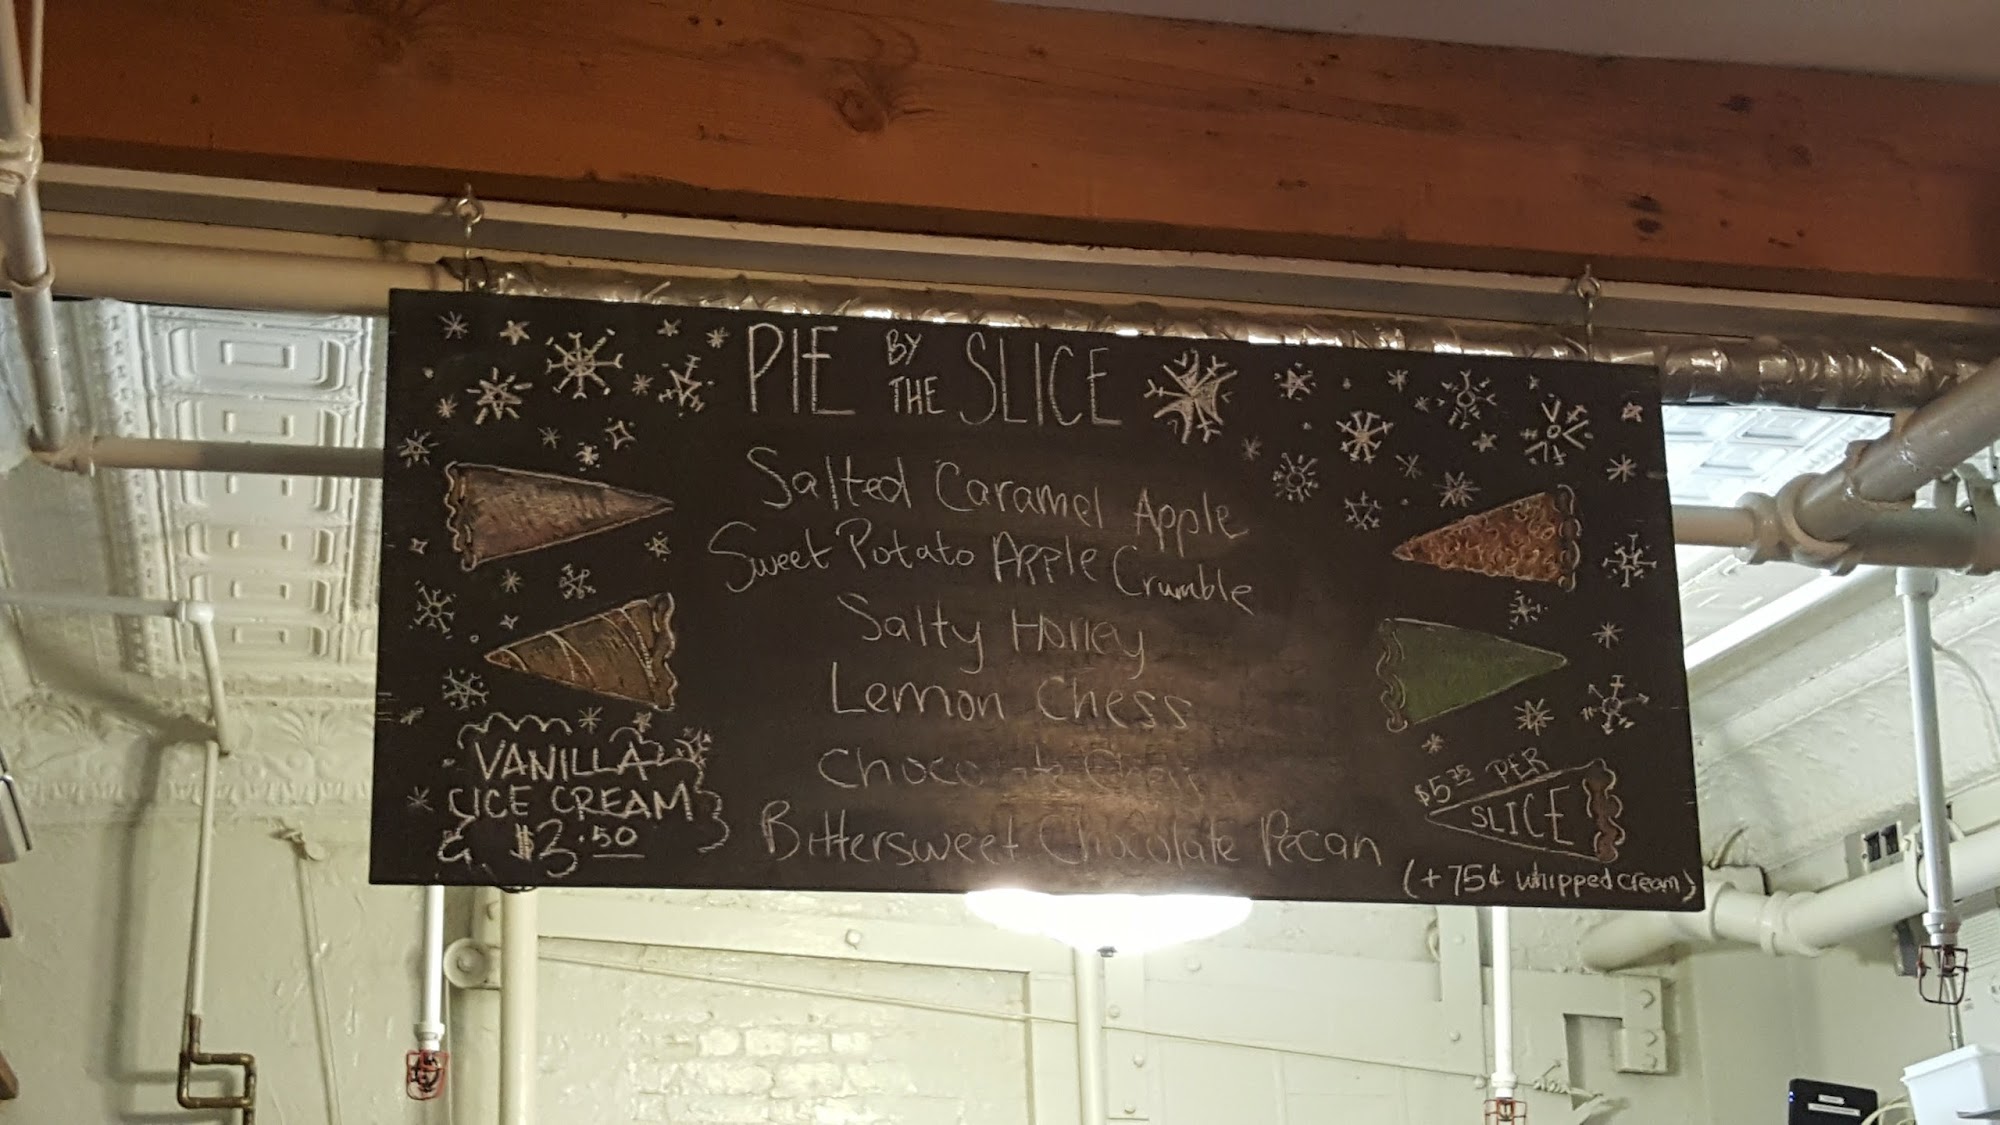 PIE BY THE SLICE
Salted Caramel Apple
Sweet Potato Apple Crumble
Salty Honey
Lemon Chess
Chocolate
Bittersweet Chocolate Pecan
VANILLA
ICE CREAM
$3.50
$5.75 PER
SLICE
(+75¢ whipped cream)